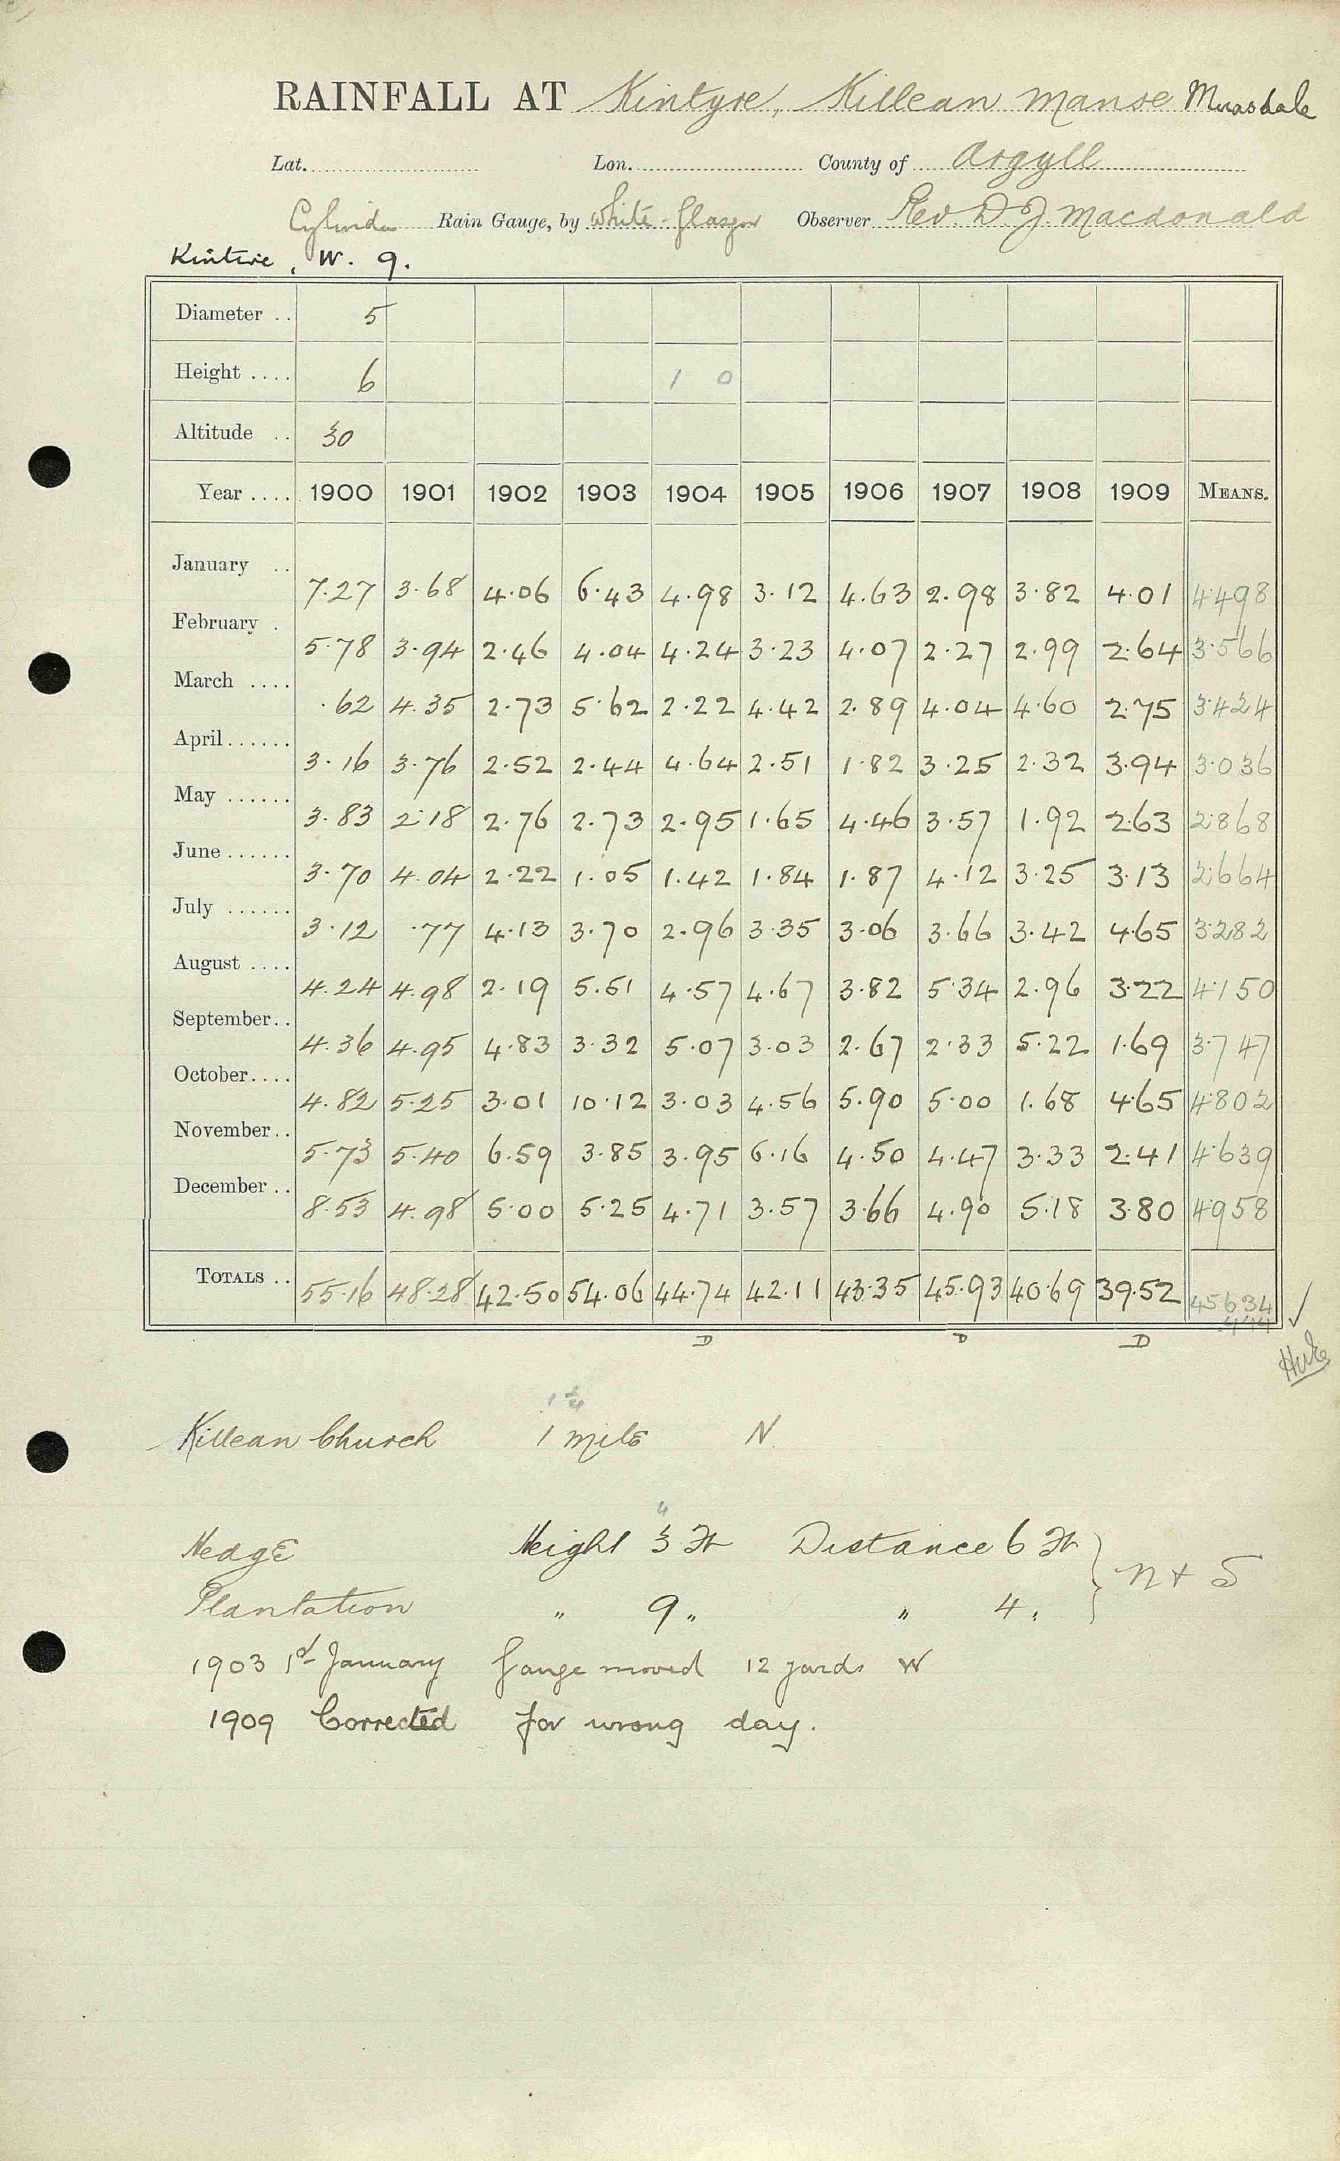 RAINFALL AT Kintyre, Killean Manse Muasdale
Lat. Lon. County of Argyll
Cylinder Rain Gauge, by White-Glasgow Observer Rev. D. J. Macdonald
Kintire, W. 9.
Diameter .. 5
Height .... 6 1 0
Altitude .. 30
Year .... 1900 1901 1902 1903 1904 1905 1906 1907 1908 1909 MEANS.
January .. 7.27 3.68 4.06 6.43 4.98 3.12 4.63 2.98 3.82 4.01 4.498
February . 5.78 3.94 2.46 4.04 4.24 3.23 4.07 2.27 2.99 2.64 3.566
March .... .62 4.35 2.73 5.62 2.22 4.42 2.89 4.04 4.60 2.75 3.424
April...... 3.16 3.76 2.52 2.44 4.64 2.51 1.82 3.25 2.32 3.94 3.036
May ...... 3.83 2.18 2.76 2.73 2.95 1.65 4.46 3.57 1.92 2.63 2.868
June...... 3.70 4.04 2.22 1.05 1.42 1.84 1.87 4.12 3.25 3.13 2.664
July ...... 3.12 .77 4.13 3.70 2.96 3.35 3.06 3.66 3.42 4.65 3.282
August .... 4.24 4.98 2.19 5.51 4.57 4.67 3.82 5.34 2.96 3.22 4.150
September.. 4.36 4.95 4.83 3.32 5.07 3.03 2.67 2.33 5.22 1.69 3.747
October.... 4.82 5.25 3.01 10.12 3.03 4.56 5.90 5.00 1.68 4.65 4.802
November.. 5.73 5.40 6.59 3.85 3.95 6.16 4.50 4.47 3.33 2.41 4.639
December .. 8.53 4.98 5.00 5.25 4.71 3.57 3.66 4.90 5.18 3.80 4.958
TOTALS .. 55.16 48.28 42.50 54.06 44.74 42.11 43.35 45.93 40.69 39.52 45634
D D D
Killean Church 1 mile N
4
Hedge Height 3 Ft Distance 6 Ft
N + S
Plantation " 9 " " 4 "
1903 1st January Gauge moved 12 yards W
1909 Corrected for wrong day.